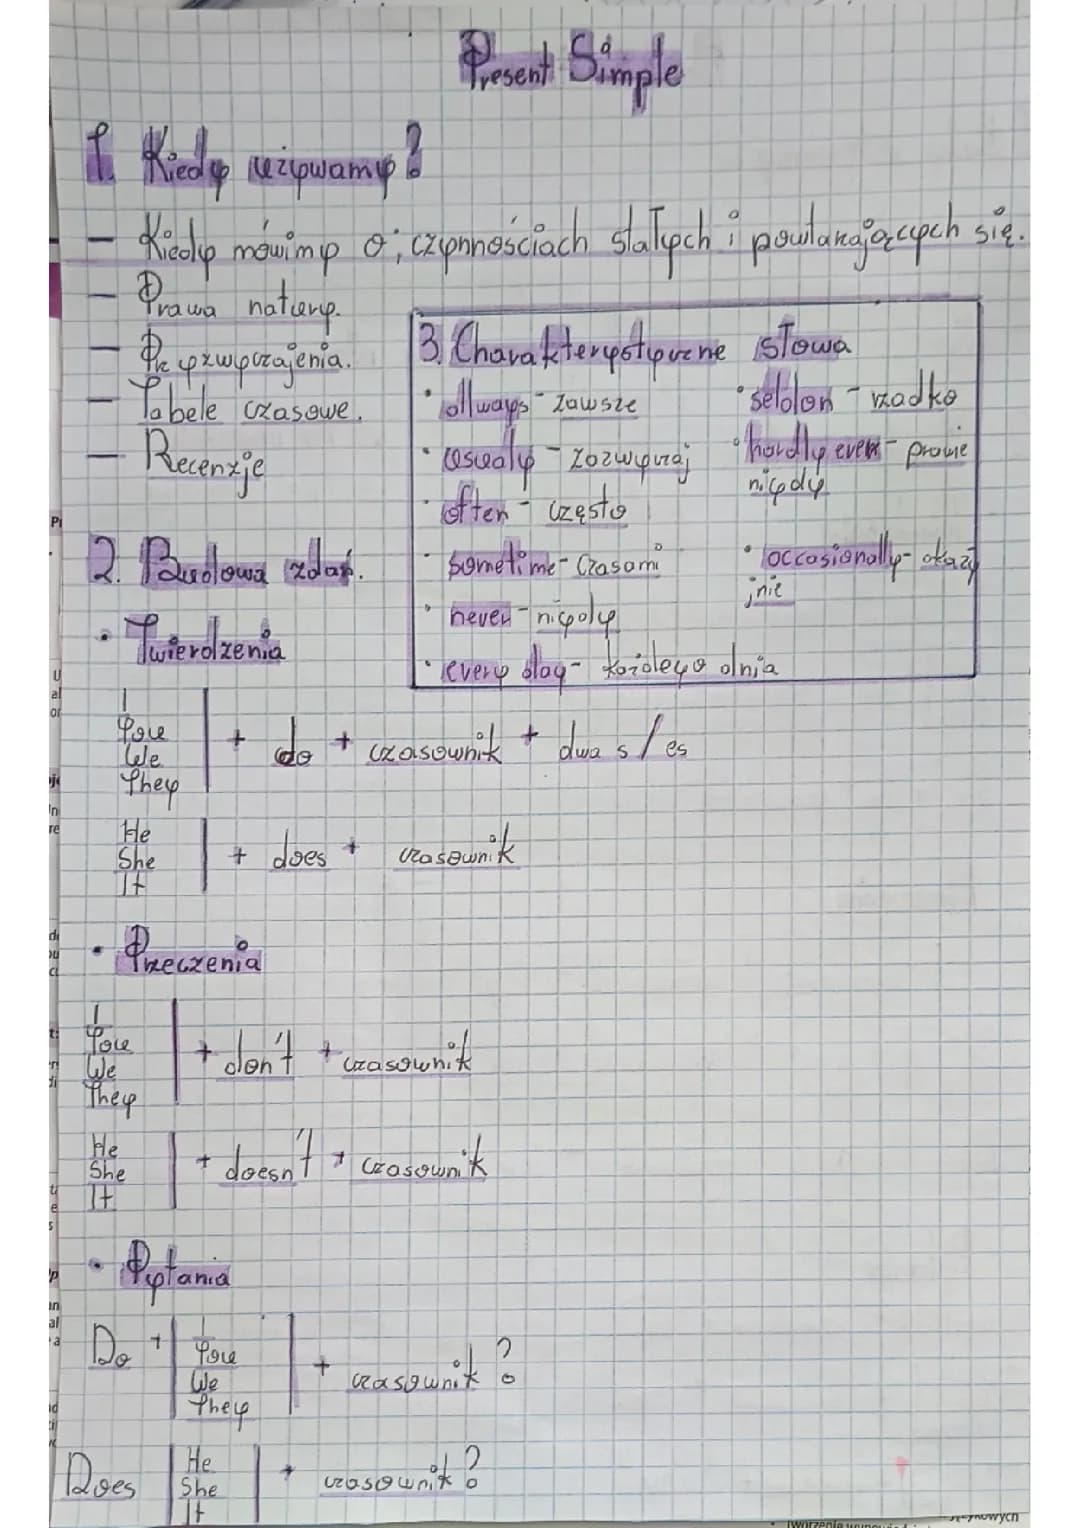 Present Simple
1. Kiedy używamy?
– Kiedy mówimy o; czynnościach stałych i powtarzających się.
– Prawa natury.
– Przyzwyczajenia.
– Tabele czasowe.
– Recenzje
3. Charakterystyczne słowa
• allways - zawsze
• usualy - zazwyczaj
• often - często
• sometime - czasami
• never - nigdy
• every day - każdego dnia
• seldon - rzadko
• hardly ever - prawie
nigdy
• occasionally - okazy
jnie
2. Budowa zdań.
• Twierdzenia
I
You
We
They
+ do + czasownik + dwa s / es
He
She
It
+ does + czasownik
• Przeczenia
I
You
We
They
+ don't + czasownik
He
She
It
+ doesn't + czasownik
• Pytania
Do +
I
You
We
They
+ czasownik?
Does
He
She
It
+ czasownik?